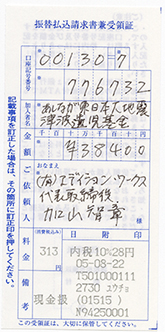 振替払込請求書兼受領証
口座記号番号
00130 7
776732
加入者名
あしなが東日本大地震
津波遺児基金
金額
千 百 十 万 千 百 十 円
¥38400
ご依頼人
おなまえ
(有)エディション・ワークス
代表取締役
加山智章
料金
313
円
日附印
内税10%28円
05-08-22
T5010001112
2730 ユウチョ
備考
現金扱(01515)
N94250001
この受領証は、大切に保管してください。
記載事項を訂正した場合は、その箇所に訂正印を押してください。